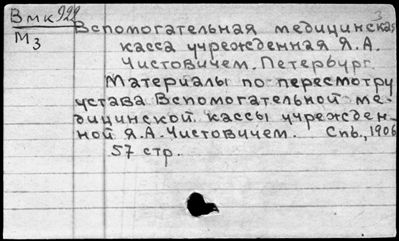 Вмк 922
М3
3
Вспомогательная медицинская
касса учрежденная Я.А.
Чистовичем. Петербург.
Материалы по пересмотру
устава Вспомогательной ме-
дицинской кассы учрежден-
ной Я.А. Чистовичем. Спб., 1906
57 стр.